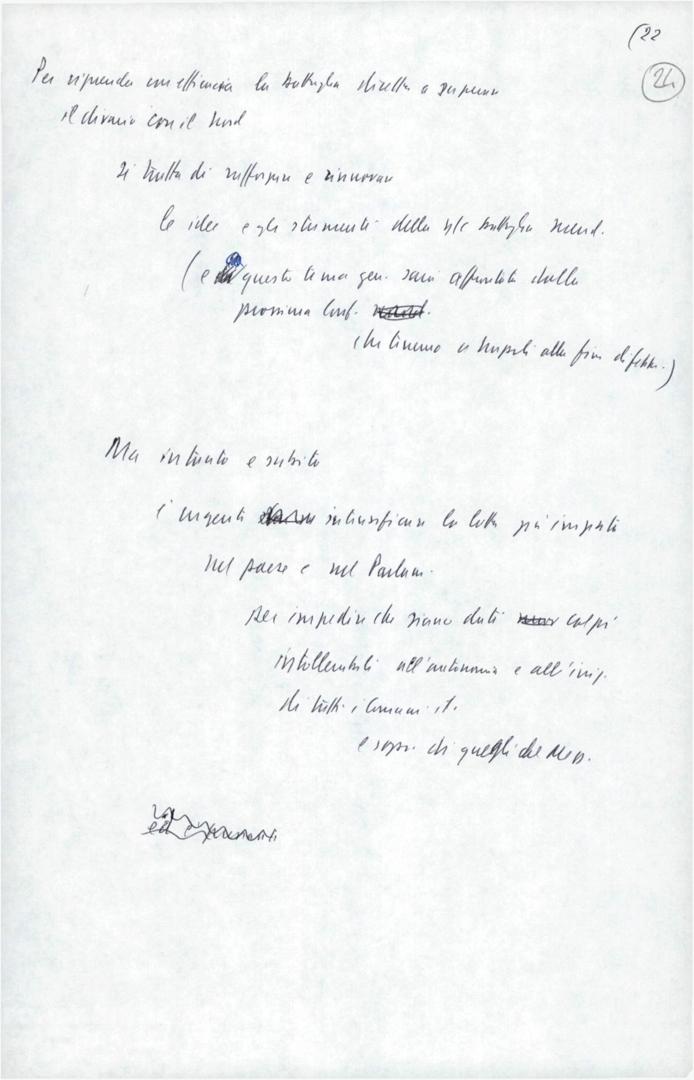 (22
24
Per riprender con efficacia la battaglia diretta a superare
il divario con il Nord
si tratta di rafforzare e rinnovare
le idee e gli strumenti della ns battaglia merid.
(e questo tema gen. sarà affrontato dalla
prossima Conf.
che terremo a Napoli alla fine di febbr.)
Ma intanto e subito
è urgente intensificare la lotta più impeg
nel paese e nel Parlam.
per impedire che siano dati colpi
intollerabili all'autonomia e all'imp.
di tutti i Comuni it.
e sopr. di quegli del Mezz.